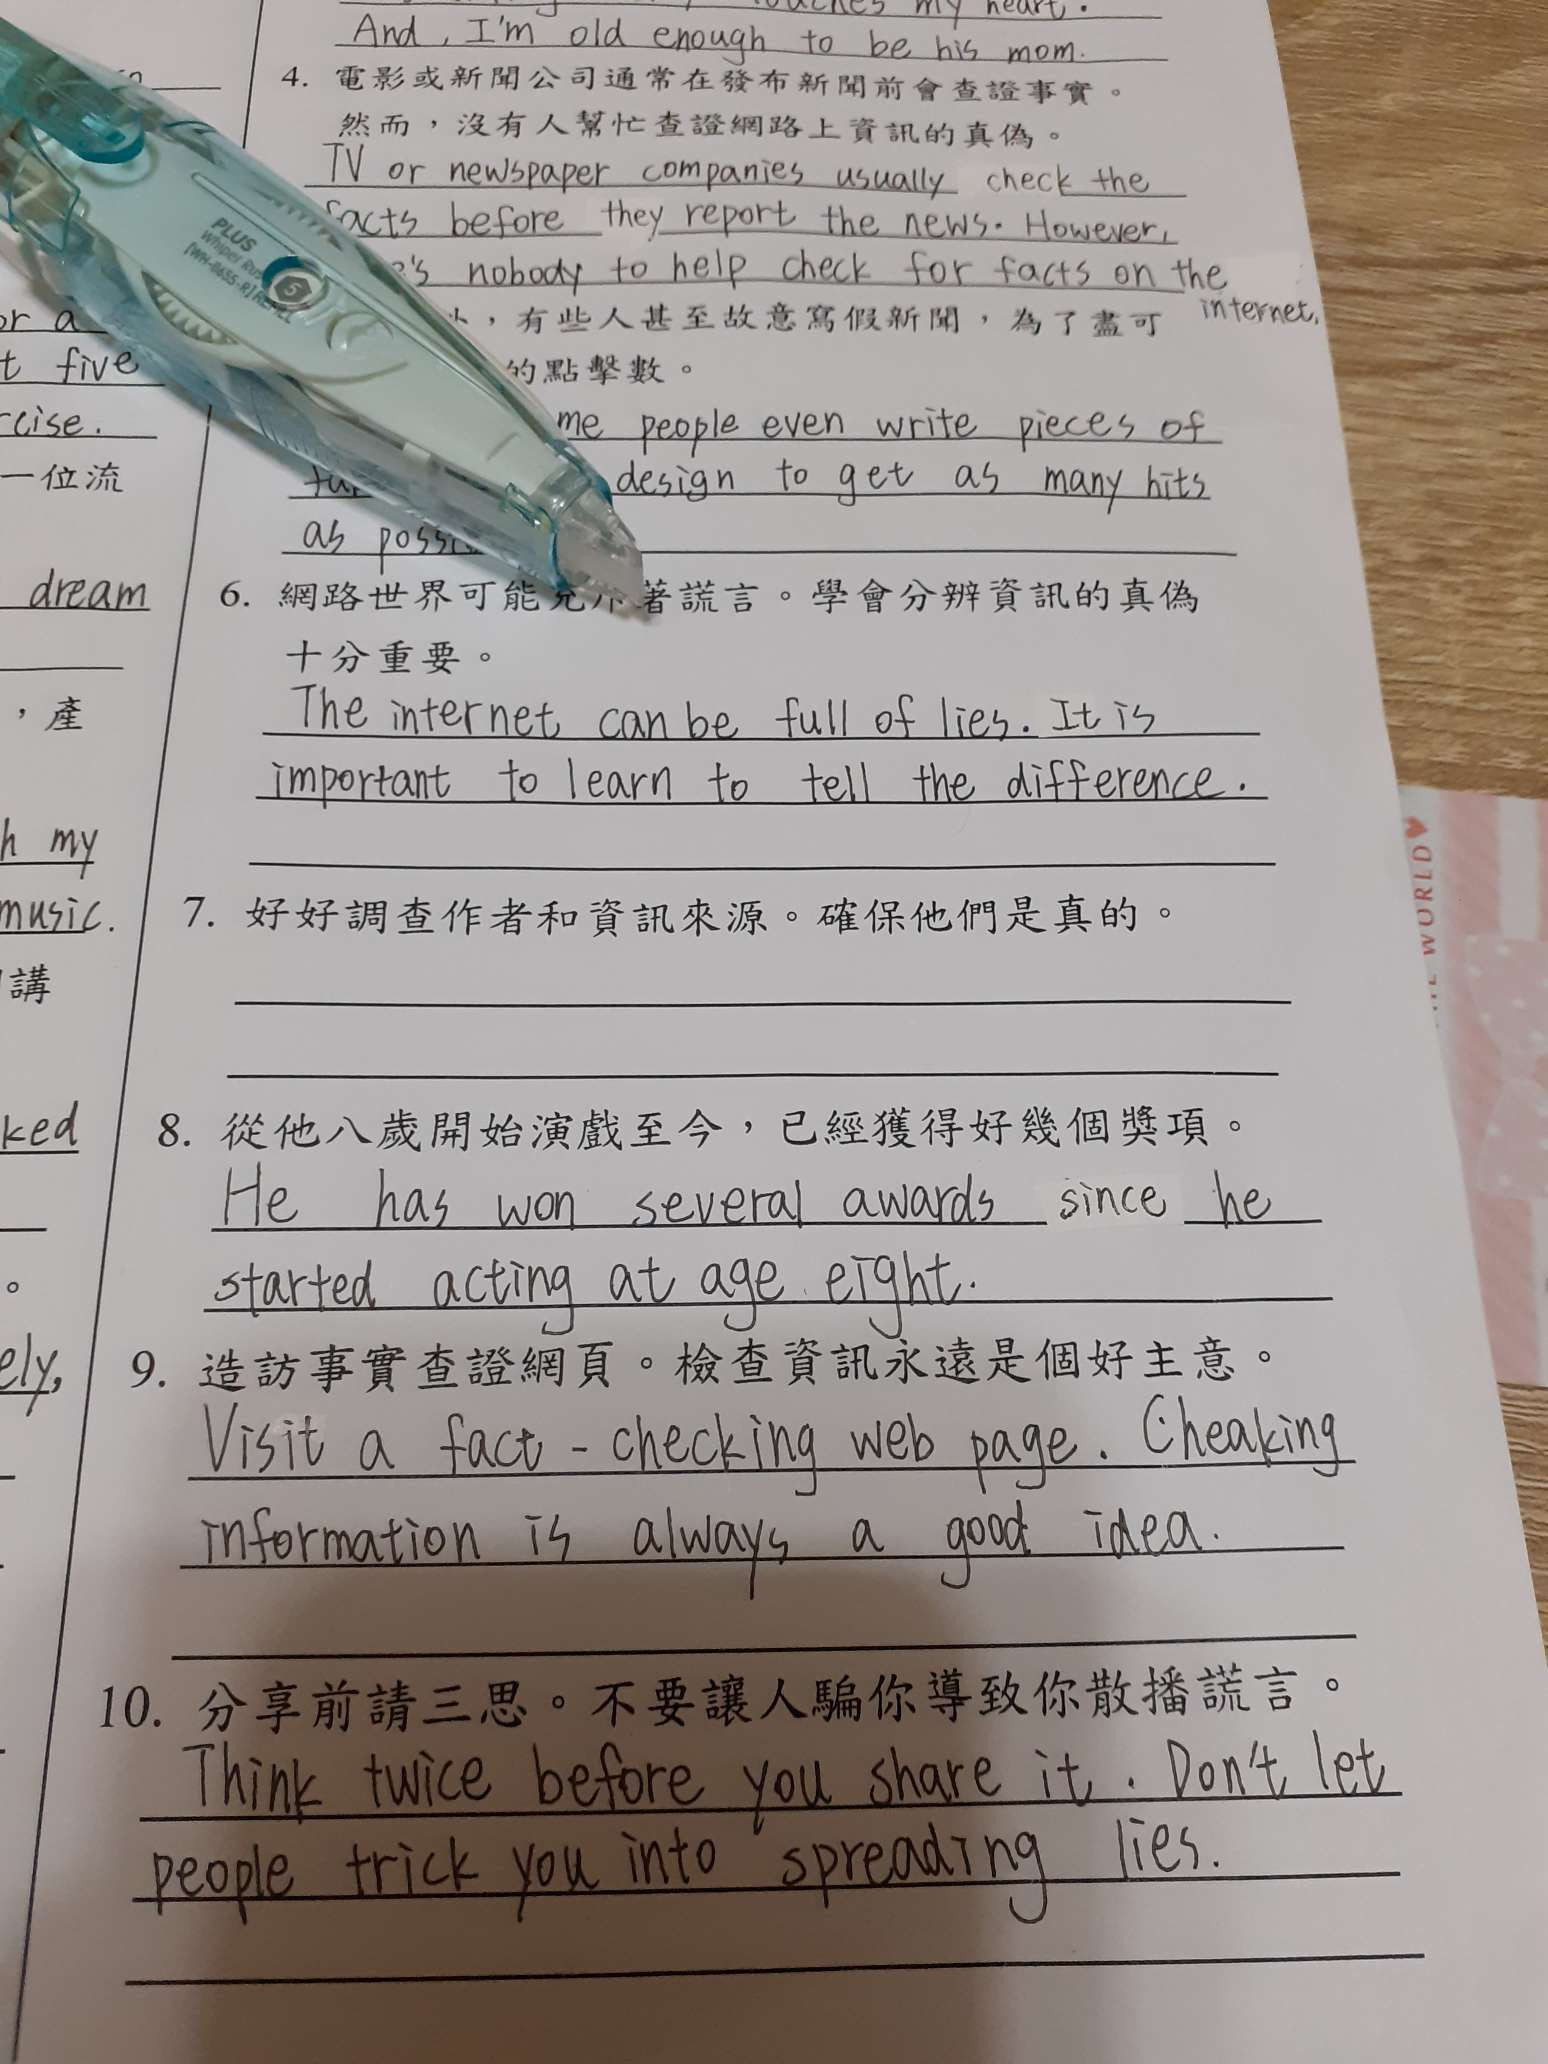 touches my heart.
And, I'm old enough to be his mom.
4. 電影或新聞公司通常在發布新聞前會查證事實。
然而，沒有人幫忙查證網路上資訊的真偽。
TV or newspaper companies usually check the
facts before they report the news. However,
nobody to help check for facts on the
internet.
，有些人甚至故意寫假新聞，為了盡可
的點擊數。
me people even write pieces of
design to get as many hits
as
6. 網路世界可能充斥著謊言。學會分辨資訊的真偽
十分重要。
The internet can be full of lies. It is
important to learn to tell the difference.
7. 好好調查作者和資訊來源。確保他們是真的。
8. 從他八歲開始演戲至今，已經獲得好幾個獎項。
He has won several awards since he
started acting at age eight.
9. 造訪事實查證網頁。檢查資訊永遠是個好主意。
Visit a fact-checking web page. Cheaking
information is always a good idea.
10. 分享前請三思。不要讓人騙你導致你散播謊言。
Think twice before you share it. Don't let
people trick you into spreading lies.
or a
t five
rcise.
一位流
dream
，產
h my
music.
講
ked
。
ely,
PLUS
Whiper Rush
WORLD